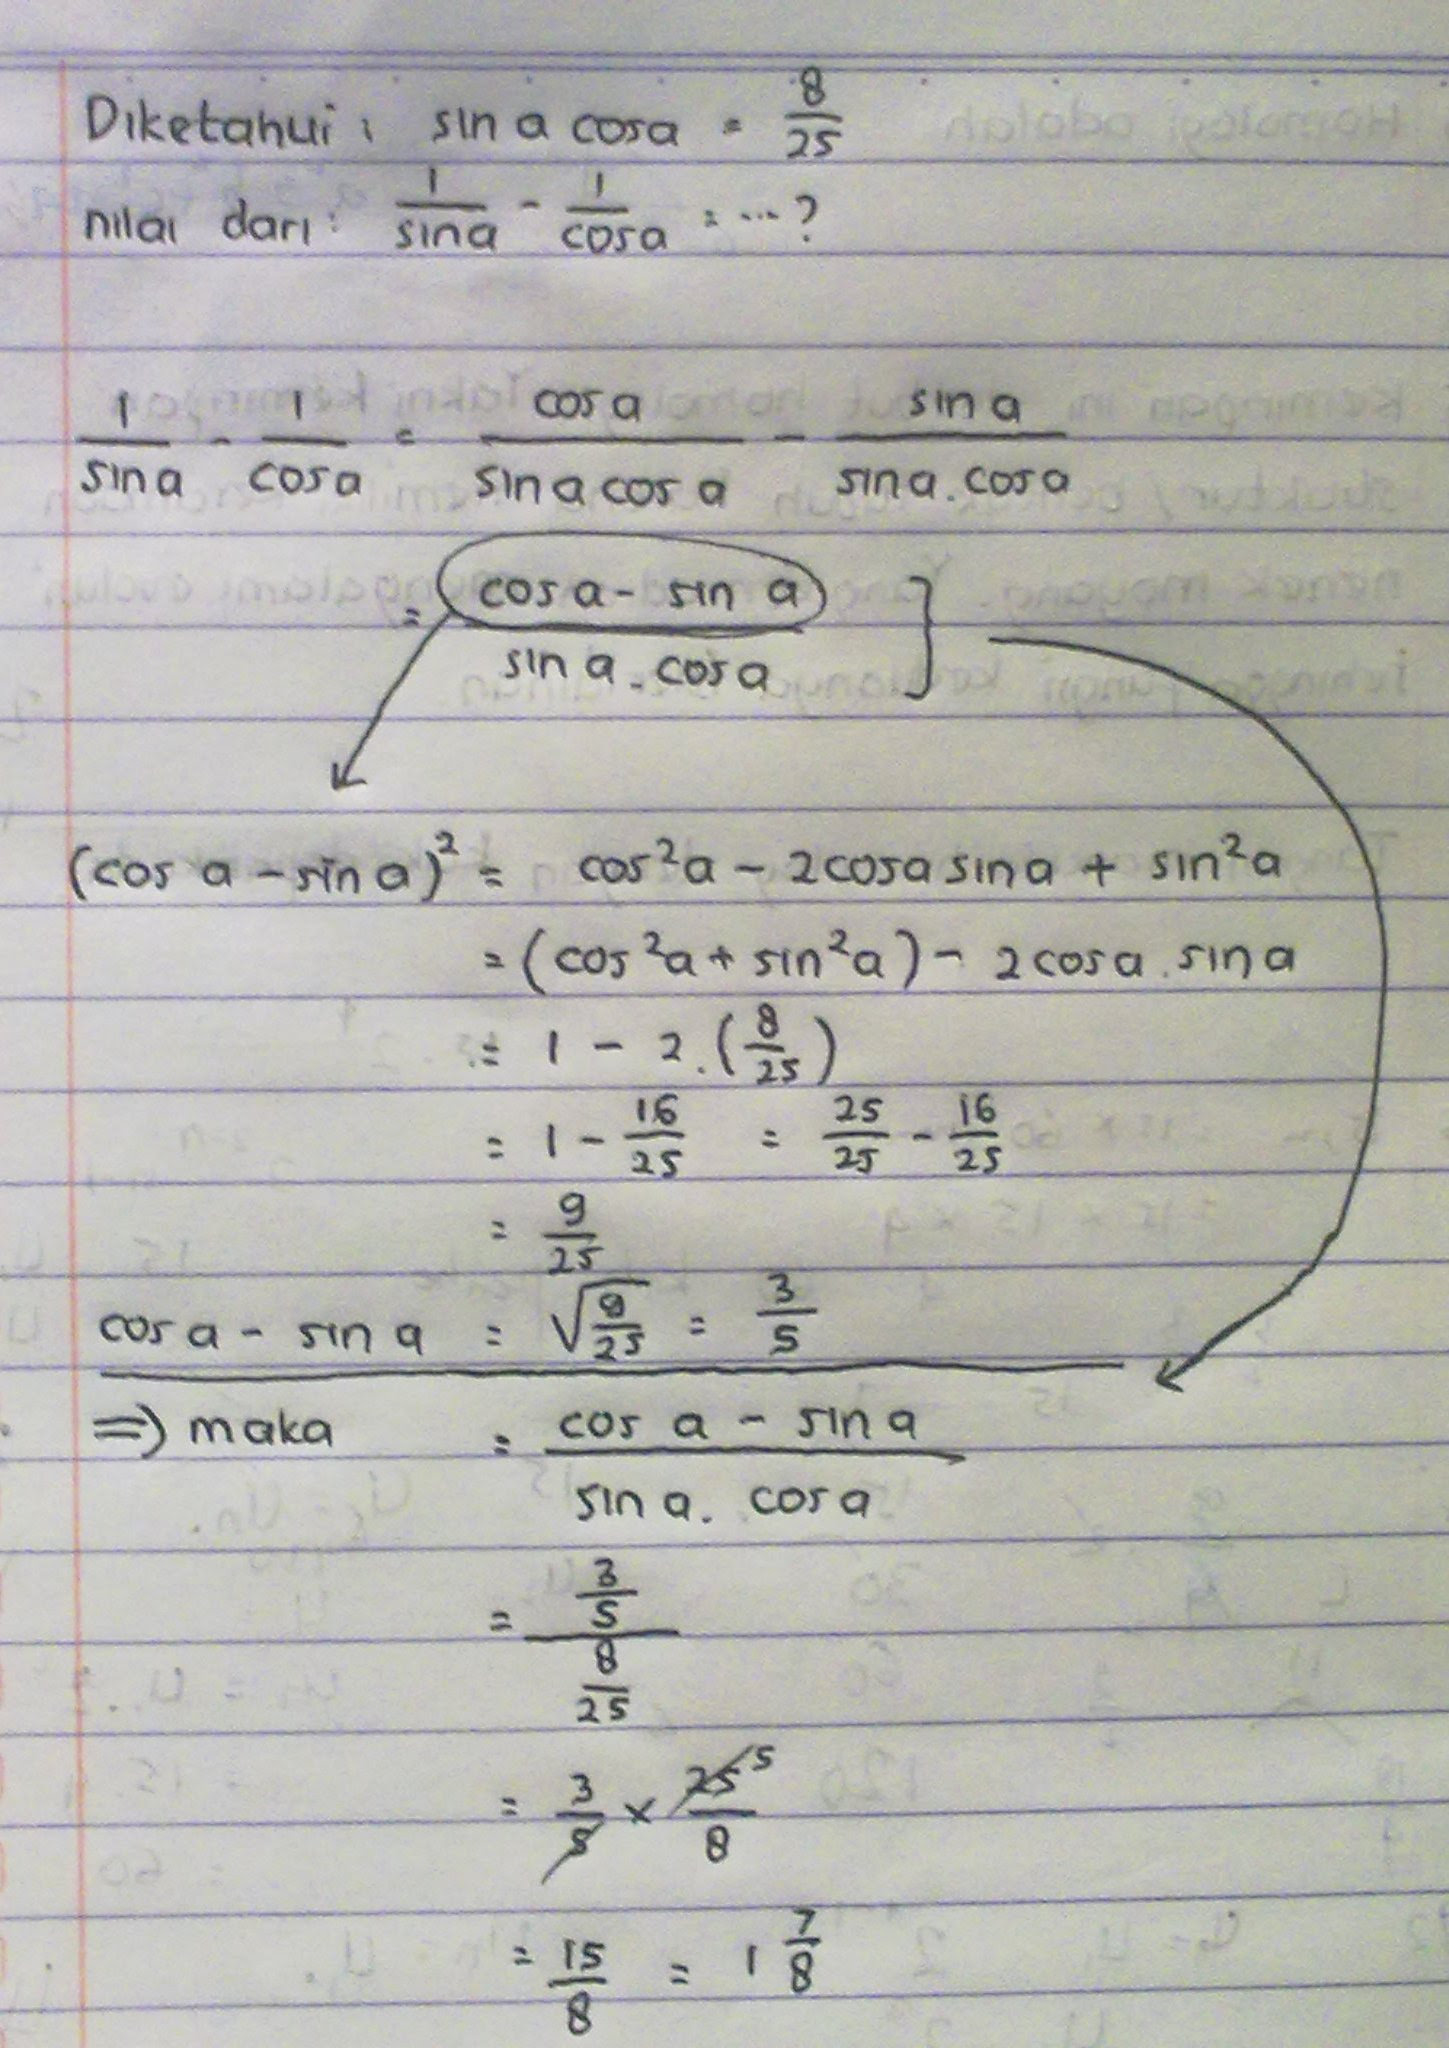 Diketahui : sin a cos a = 8/25
nilai dari : 1/sin a - 1/cos a = ... ?
1/sin a - 1/cos a = cos a/sin a cos a - sin a/sin a . cos a
= cos a - sin a/sin a . cos a
(cos a - sin a)² = cos²a - 2 cos a sin a + sin²a
= (cos²a + sin²a) - 2 cos a . sin a
= 1 - 2 . (8/25)
= 1 - 16/25 = 25/25 - 16/25
= 9/25
cos a - sin a = √9/25 = 3/5
=> maka = cos a - sin a/sin a . cos a
= 3/5 / 8/25
= 3/5 x 25/8 5
= 15/8 = 1 7/8